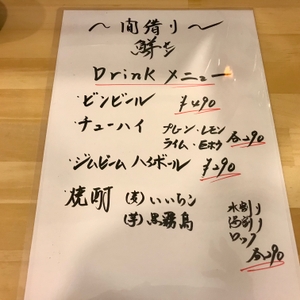 ～間借り～
鮮さ
Drink メニュー
・ビンビール ¥490
・チューハイ プレーン・レモン
ライム・巨峰 各290
・ジムビーム ハイボール ¥290
・焼酎 (麦) いいちこ
(芋) 黒霧島
水割り
湯割り
ロック
各290